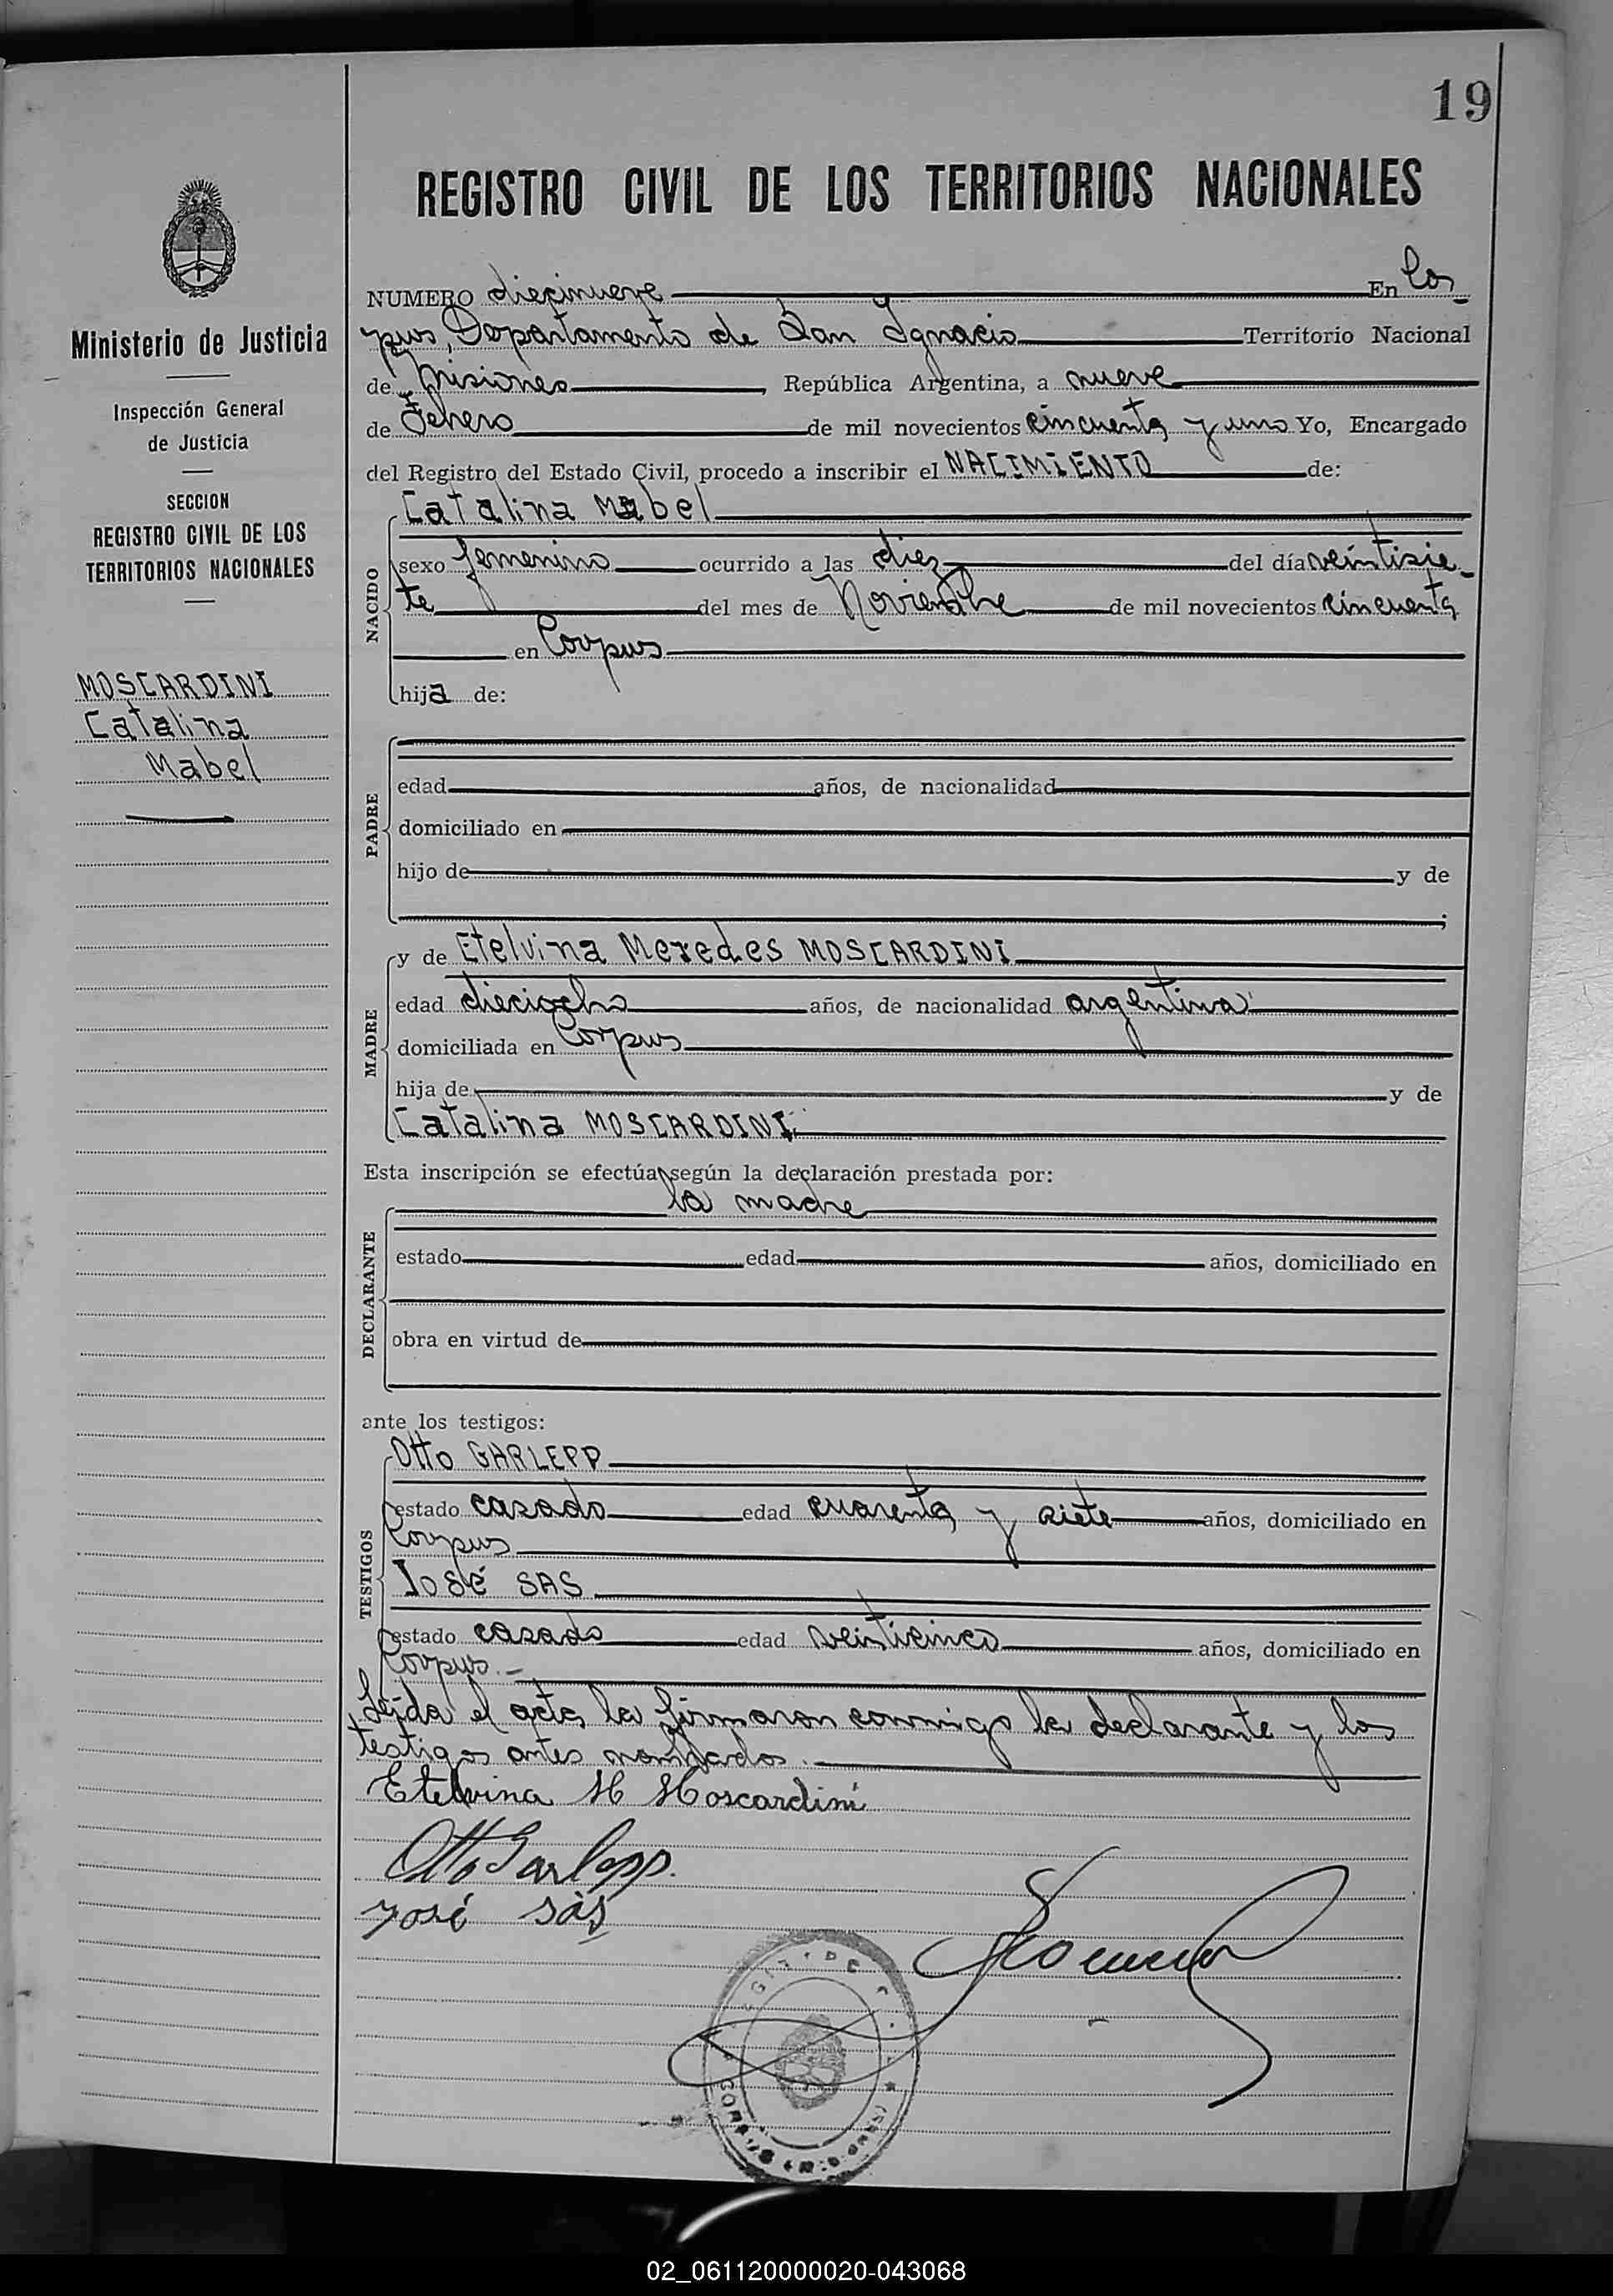 19
REGISTRO CIVIL DE LOS TERRITORIOS NACIONALES
Ministerio de Justicia
Inspección General
de Justicia
SECCION
REGISTRO CIVIL DE LOS
TERRITORIOS NACIONALES
MOSCARDINI
Catalina
Mabel
NUMERO diecinueve En Cor
pus, Departamento de San Ignacio Territorio Nacional
de Misiones, República Argentina, a nueve
de Febrero de mil novecientos cincuenta y uno Yo, Encargado
del Registro del Estado Civil, procedo a inscribir el NACIMIENTO de:
NACIDO
Catalina Mabel
sexo femenino ocurrido a las diez del día veintisie-
te del mes de Noviembre de mil novecientos cincuenta
en Corpus
hija de:
PADRE
edad años, de nacionalidad
domiciliado en
hijo de y de
;
MADRE
y de Etelvina Meredes MOSCARDINI
edad dieciocho años, de nacionalidad argentina
domiciliada en Corpus
hija de y de
Catalina MOSCARDINI
Esta inscripción se efectúa según la declaración prestada por:
DECLARANTE
la madre
estado edad años, domiciliado en
obra en virtud de
ante los testigos:
TESTIGOS
Otto GARLEPP
estado casado edad cuarenta y siete años, domiciliado en
Corpus
José SAS
estado casado edad veinticinco años, domiciliado en
Corpus.-
Leída el acta, la firmaron conmigo la declarante y los
testigos antes nombrados.
Etelvina M Moscardini
Otto Garlepp.
José Sás
CORPUS
02_061120000020-043068